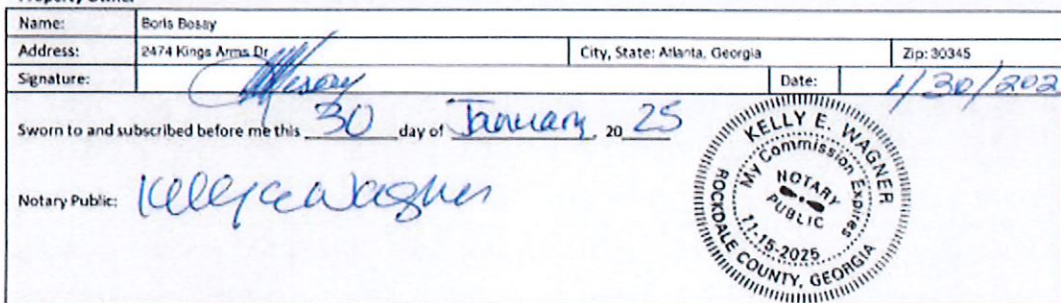 Property Owner
Name: Boris Bosay
Address: 2474 Kings Arms Dr City, State: Atlanta, Georgia Zip: 30345
Signature: Date: 1/30/202
Sworn to and subscribed before me this 30 day of January, 20 25
Notary Public: Kelly E Wagner
KELLY E. WAGNER
My Commission Expires
NOTARY
PUBLIC
11-15-2025
ROCKDALE COUNTY, GEORGIA